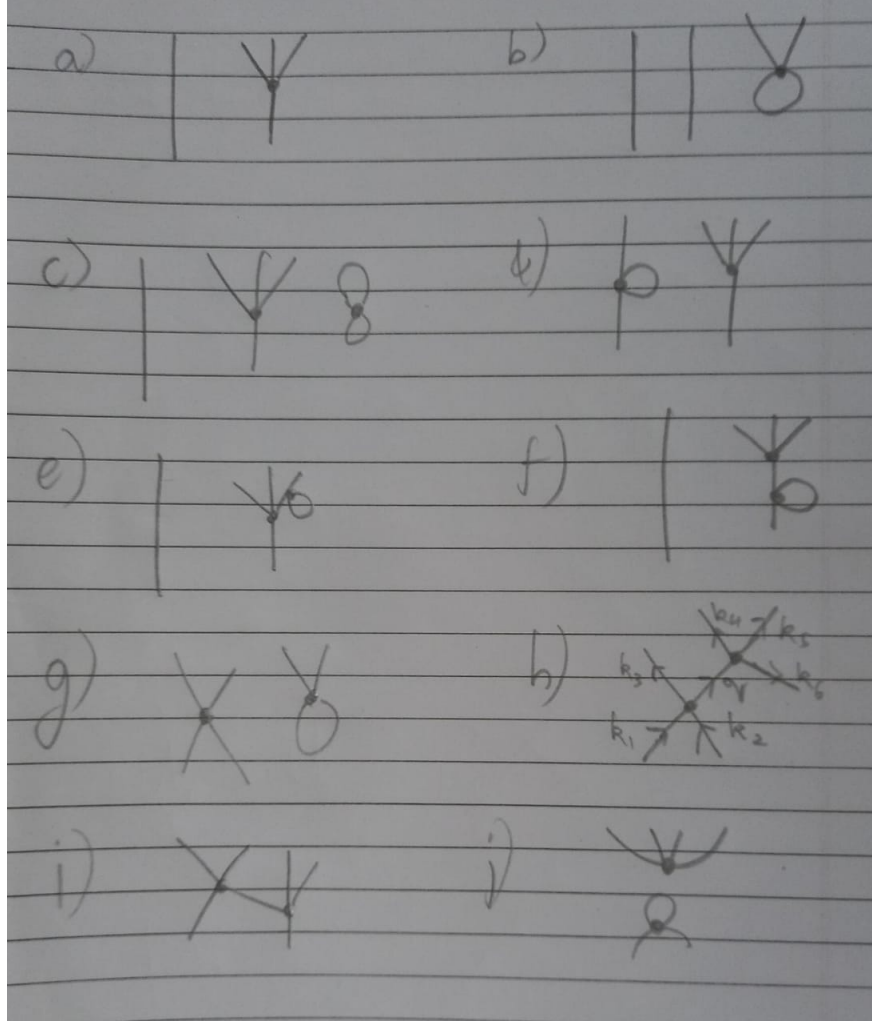 a) b)
c) d)
e) f)
g) h) k₁ k₂ k₃ k₄ k₅ k₆ q
i) j)